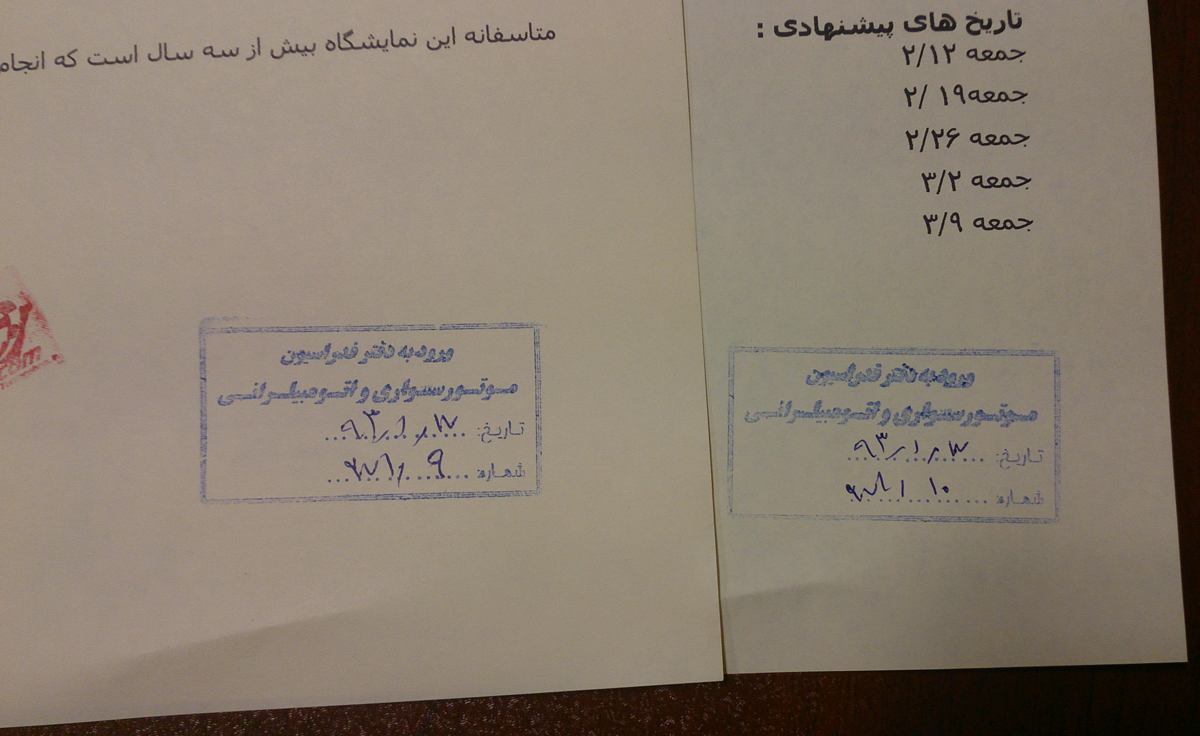 تاریخ های پیشنهادی :
جمعه ۲/۱۲
جمعه۱۹ /۲
جمعه ۲/۲۶
جمعه ۳/۲
جمعه ۳/۹
ورود به دفتر فدراسیون
موتورسواری و اتومبیلرانی
تاریخ: ۹۳/۱/۱۷
شماره: ۱۰
متاسفانه این نمایشگاه بیش از سه سال است که انجام
ورود به دفتر فدراسیون
موتورسواری و اتومبیلرانی
تاریخ: ۹۳/۱/۱۷
شماره: ۹